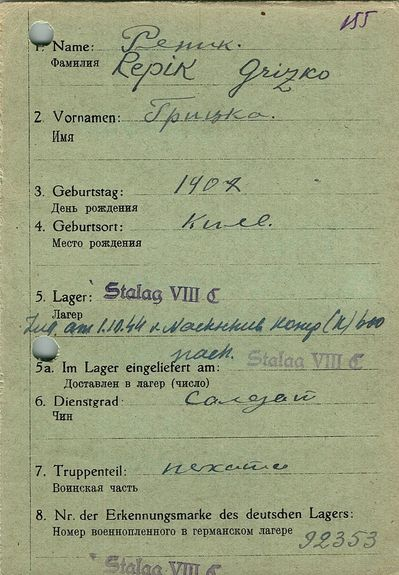 155
1. Name: Репик.
Фамилия Repik Grizko
2. Vornamen: Грицко.
Имя
3. Geburtstag: 1907
День рождения
4. Geburtsort: Киев.
Место рождения
5. Lager: Stalag VIII C
Лагерь
am 1.10.44 v. Nachschub Komp (K) 600
5a. Im Lager eingeliefert am: Stalag VIII C
Доставлен в лагерь (число)
6. Dienstgrad: солдат
Чин
7. Truppenteil: пехота
Воинская часть
8. Nr. der Erkennungsmarke des deutschen Lagers:
Номер военнопленного в германском лагере 92353
Stalag VIII C